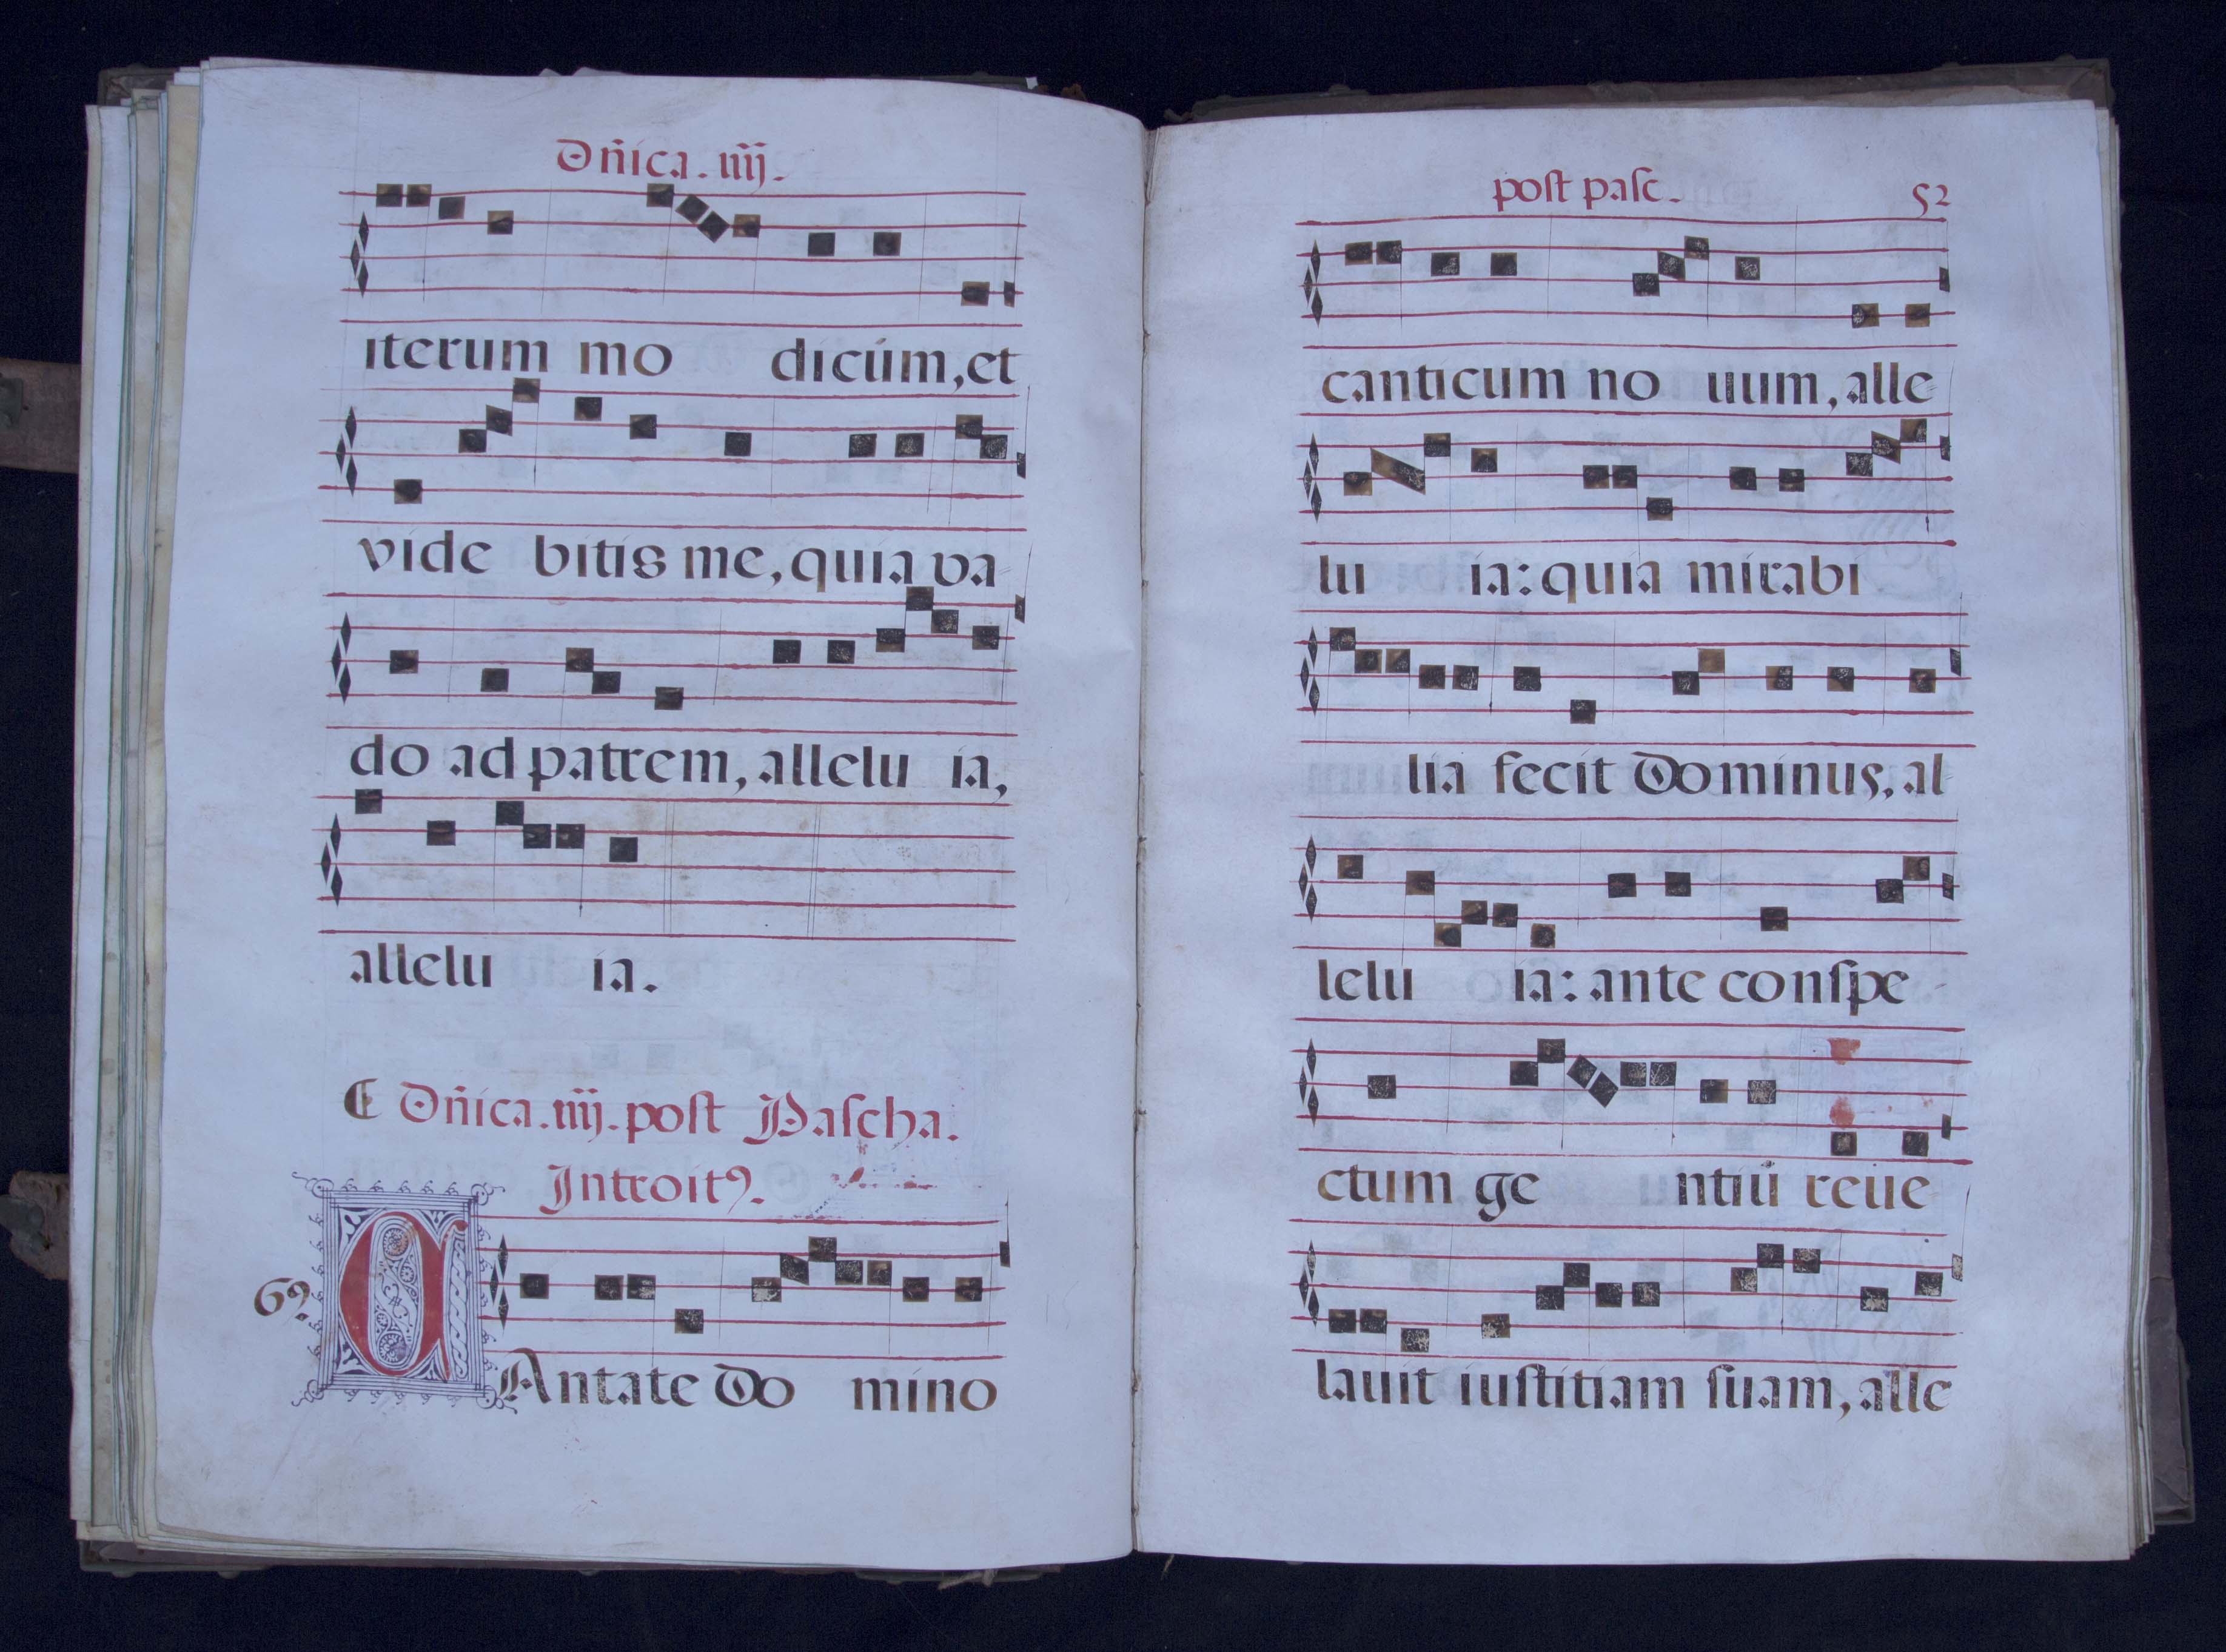 Dñica. iiij.
iterum mo dicúm, et
vide bitis me, quia va
do ad patrem, allelu ia,
allelu ia.
Dñica. iiij. post Pascha.
Introitꝰ.
6ꝰ.
CAntate Do mino
post pasc. 52
canticum no uum, alle
lu ia: quia mirabi
lia fecit Dominus, al
lelu ia: ante conſpe
ctum ge ntiū reue
lauit iuſtitiam ſuam, alle